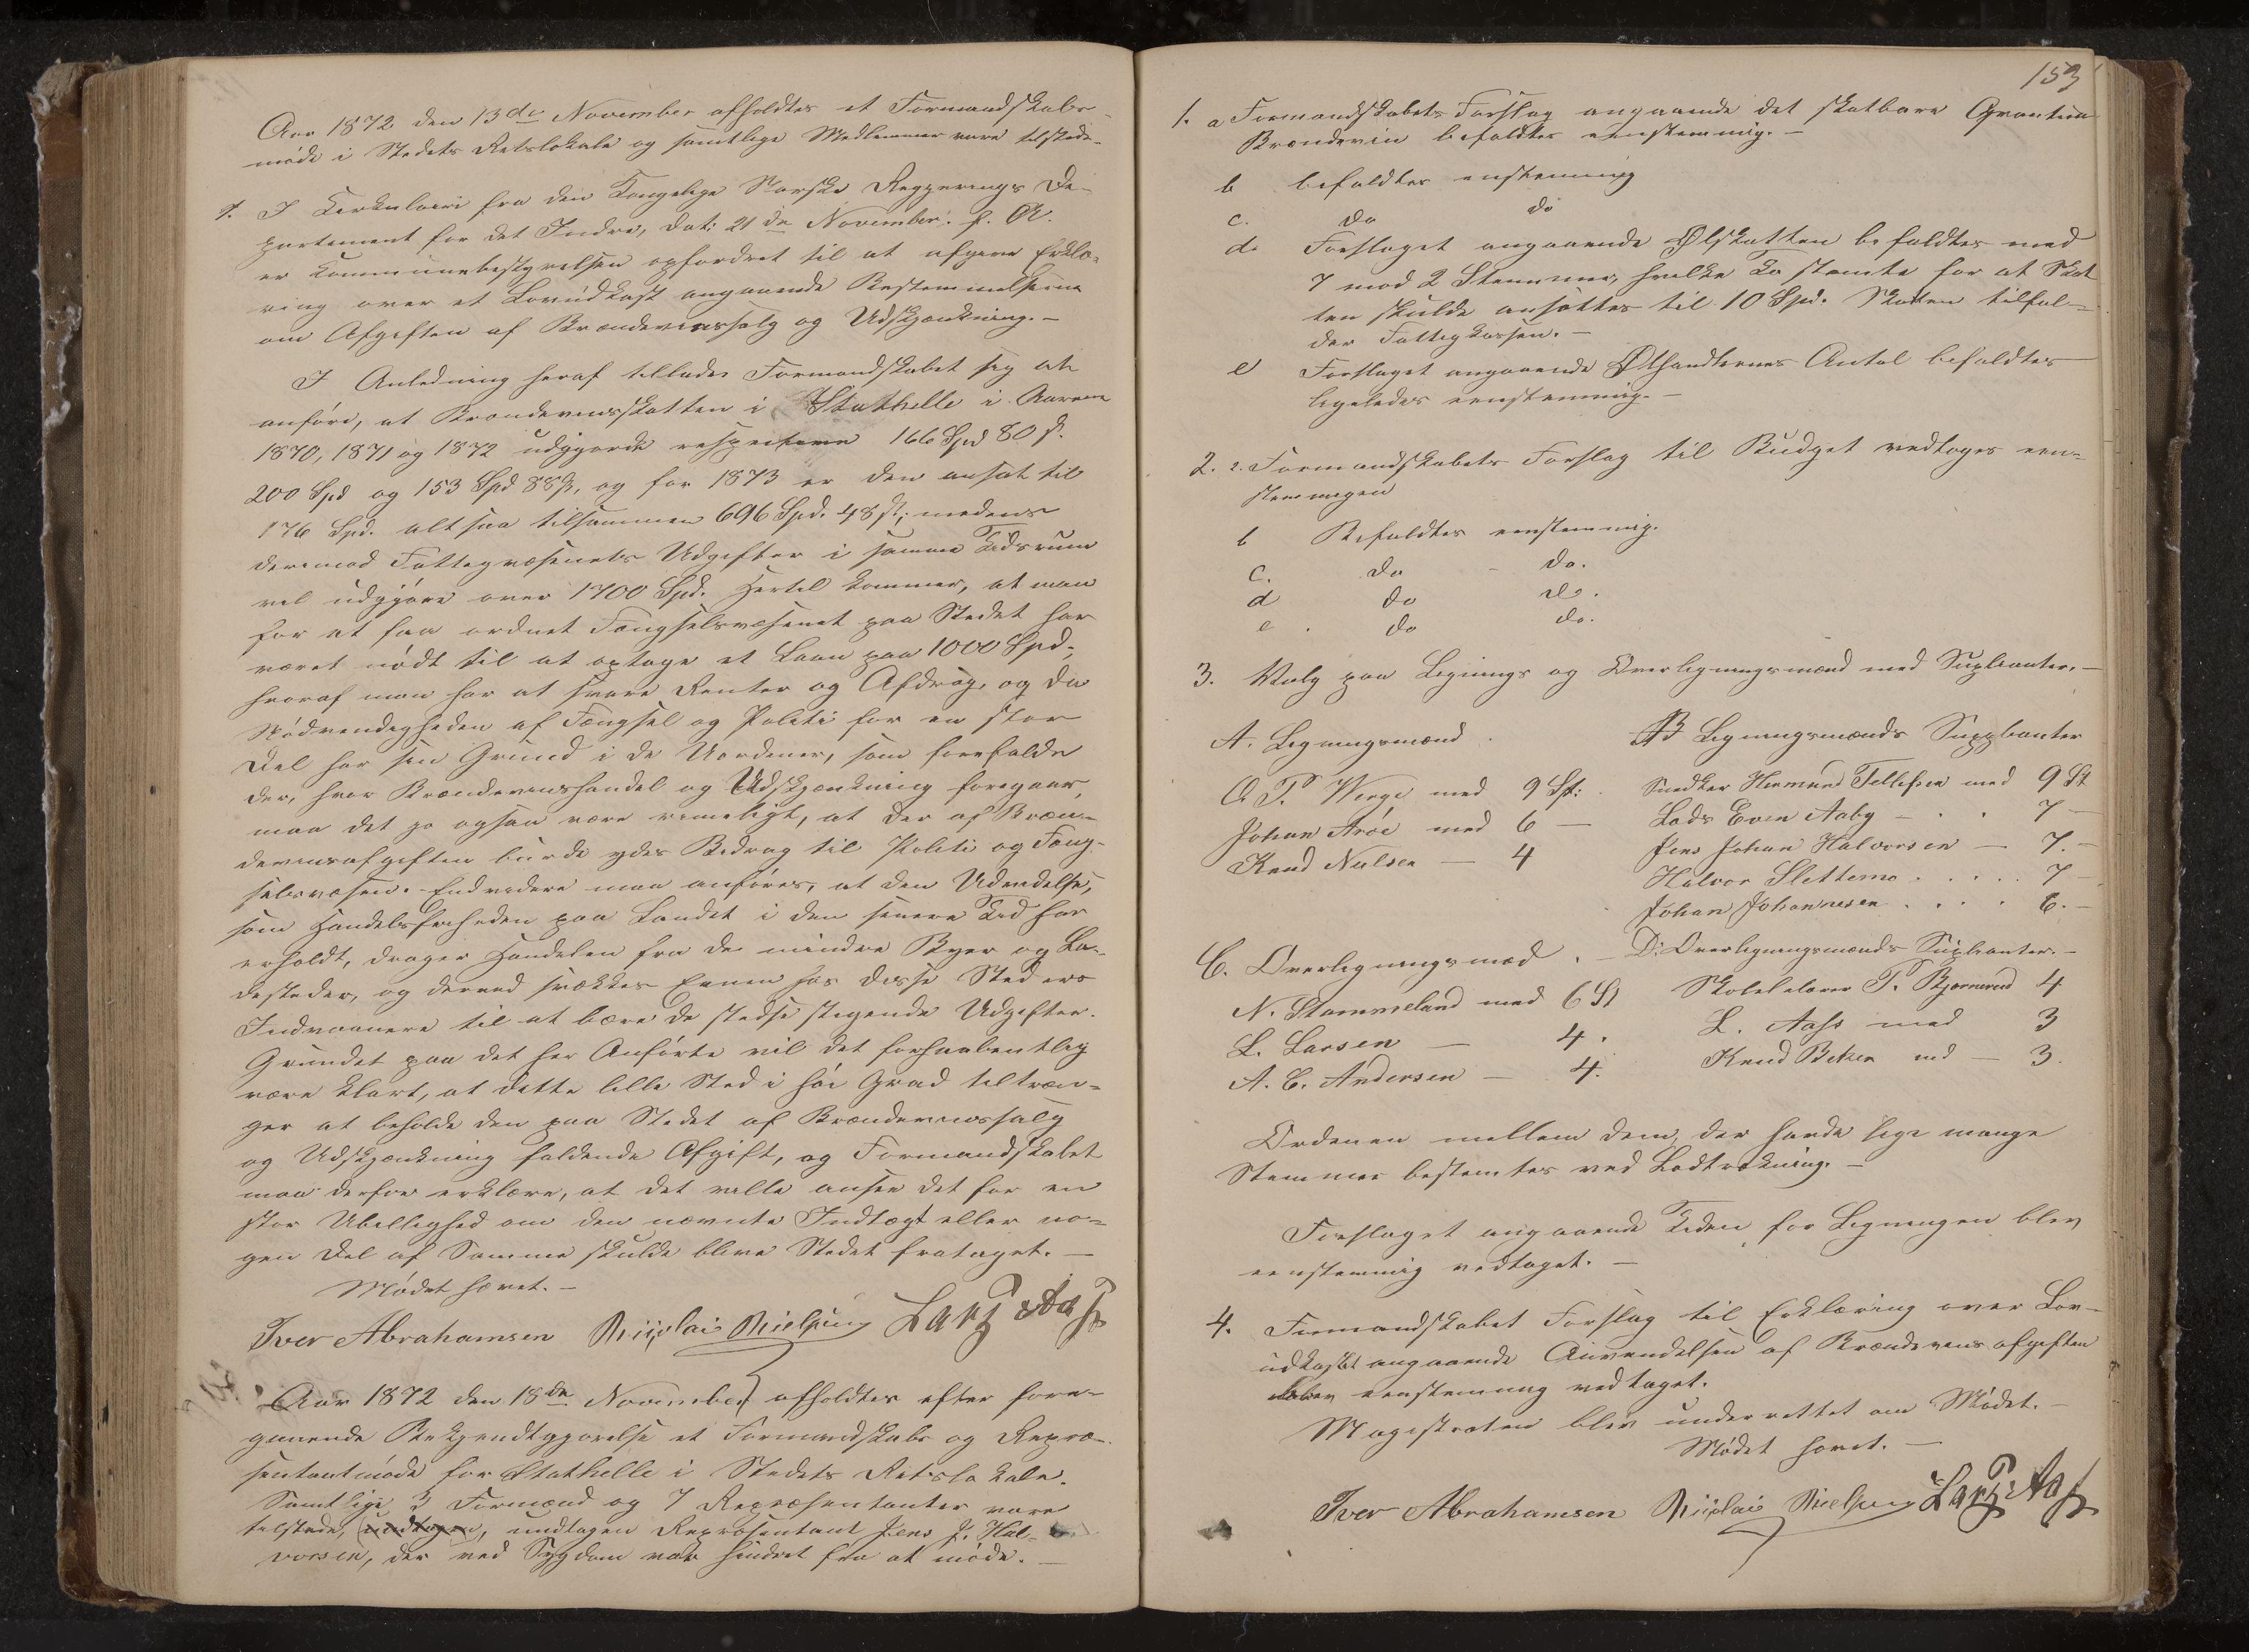 Aar 1872 den 13de November afholdtes et Formandskabs-
møde i Stedets Retslokale og samtlige Medlemmer vare tilstede.
1. I Cirkulaire fra den Kongelige Norske Regjerings De-
partement for det Indre, dat: 21de November f. A.
er Kommunebestyrelsen opfordret til at afgive Erklæ-
ring over et Lovudkast angaaende Bestemmelserne
om Afgiften af Brændevinssalg og Udskjænkning. -
I Anledning heraf tillader Formandskabet sig at
anføre, at Brændevinsskatten i Stathelle i Aarene
1870, 1871 og 1872 udgjorde respective 166 Spd 80 s.
200 Spd og 153 Spd 88 s, og for 1873 er den ansat til
176 Spd. altsaa tilsammen 696 Spd. 48 s; medens
derimod Fattigvæsenets Udgifter i samme Tidsrum
vel udgjøre over 1700 Spd. Hertil kommer, at man
for at faa ordnet Fængselsvæsenet paa Stedet har
været nødt til at optage et Laan paa 1000 Spd.,
hvoraf man har at svare Renter og Afdrag, og da
Nødvendigheden af Fængsel og Politi for en stor
Del har sin Grund i de Uordener, som forefalde
der, hvor Brændevinshandel og Udskjænkning foregaar,
maa det jo ogsaa være rimeligt, at der af Bræn-
devinsafgiften burde ydes Bidrag til Politi og Fæng-
selsvæsen. - Endvidere maa anføres, at den Udvidelse,
som Handelsfriheden paa Landet i den senere Tid har
erholdt, drager Handelen fra de mindre Byer og La-
desteder, og derved svækkes Evnen hos disse Steders
Indvaanere til at bære de stedse stigende Udgifter.
Grundet paa det her Anførte vil det forhaabentlig
være klart, at dette lille Sted i høi Grad tiltræn-
ger at beholde den paa Stedet af Brændevinssalg
og Udskjænkning faldende Afgift, og Formandskabet
maa derfor erklære, at det ville ansee det for en
stor Ubillighed om den nævnte Indtægt eller no-
gen Del af Samme skulde blive Stedet frataget. -
Mødet hævet. -
Iver Abrahamsen Nicolai Nielsen Lars Aas
Aar 1872 den 18de November afholdtes efter fore-
gaaende Bekjendtgjørelse et Formandskabs og Repræ-
sentantmøde for Stathelle i Stedets Retslokale.
Samtlige 3 Formænd og 7 Repræsentanter vare
tilstede, undtagen, undtagen Repræsentant Jens J. Hal-
vorsen, der ved Sygdom var hindret fra at møde. -
153
1. a Formandskabets Forslag angaaende det skatbare Qvantum
Brændeviin bifaldtes eenstemmig. -
b bifaldtes enstemmig
c. do do
d. Forslaget angaaende Ølskatten bifaldtes med
7 mod 2 Stemmer, hvilke to stemte for at Skat
ten skulde ansættes til 10 Spd. Skatten tilfal-
der Fattigkassen. -
e Forslaget angaaende Ølhandlernes Antal bifaldtes
ligeledes eenstemmig. -
2. a. Formandskabets Forslag til Budget vedtoges een-
stemmigen
b Bifaldtes eenstemmig.
c. do - do.
d do do.
e. do do.
3. Valg paa Lignings og Overligningsmænd med Suplianter. -
A. Ligningsmænd. B Ligningsmænds Supplianter
O. P. Werge med 9 St: Snedker Hermund Tellefsen med 9 St
Johan Arøe med 6 - Lods Even Aaby - . . 7 -
Knud Nielsen - 4 Jens Johan Halvorsen - 7. -
Halvor Slettemo . . . . . 7 -
Johan Johannesen . . . . 6. -
C. Overligningsmæd. - D. Overligningsmænds Suplianter. -
N. Stammeland med 6 St Skolelærer P. Bjørnerud 4
L. Larsen - 4. L. Aass med 3
A. C. Andersen - 4. Knud md - 3.
Ordenen mellem dem, der havde lige mange
Stemmer bestemtes ved Lodtrækning. -
Forslaget angaaende Tiden for Ligningen blev
eenstemmig vedtaget. -
4. Formandskabet Forslag til Erklæring over Lov-
udkastet angaaende Anvendelsen af Brændevinsafgiften
blev eenstemmig vedtaget.
Magistraten blev underrettet om Mødet. -
Mødet hævet. -
Iver Abrahamsen Nicolai Nielsen Lars Aas